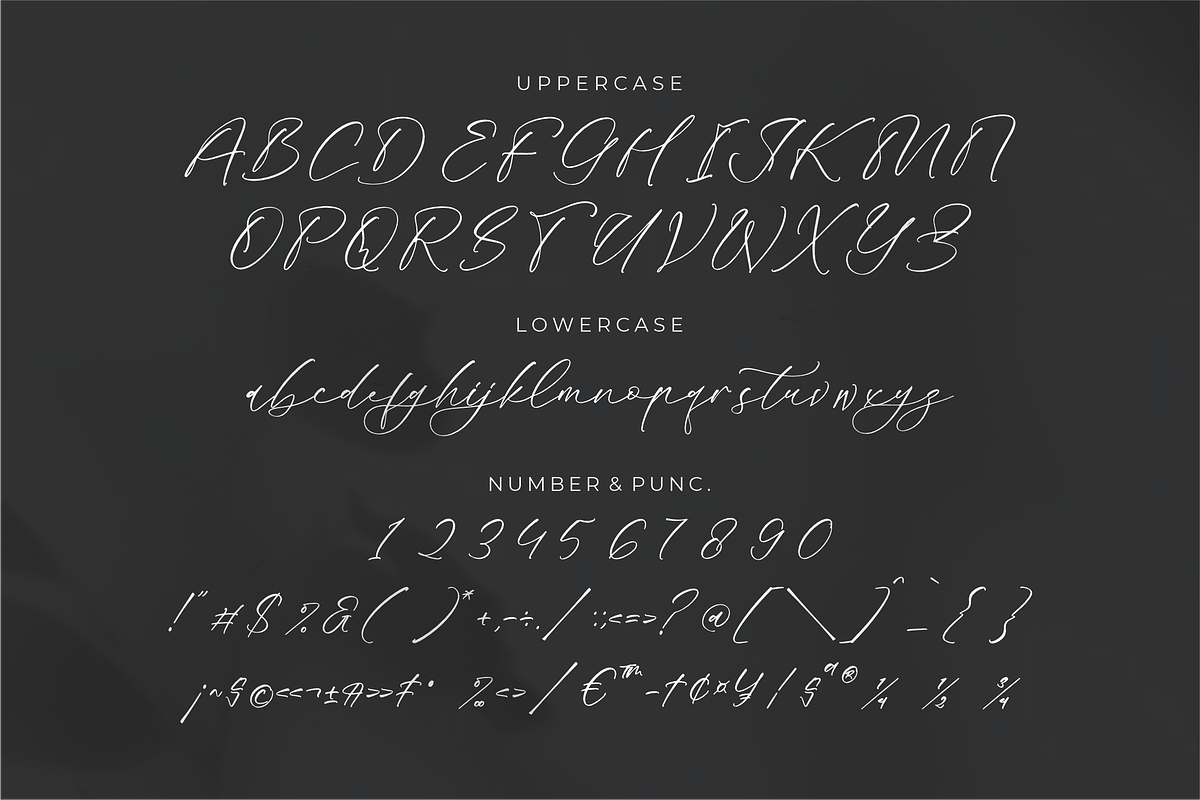 UPPERCASE
ABCD EFGH IJKMN
OPQRSTUVWXYZ
LOWERCASE
abcdefghijklmnopqrstuvwxyz
NUMBER & PUNC.
1 2 3 4 5 6 7 8 9 0
!"#$%&()*+,-÷./:;<=>?@[\]^`_{}
¡~§©<<¬±A>>F•‰<>/€™-†¢¤¥|§ª®¼ ½ ¾